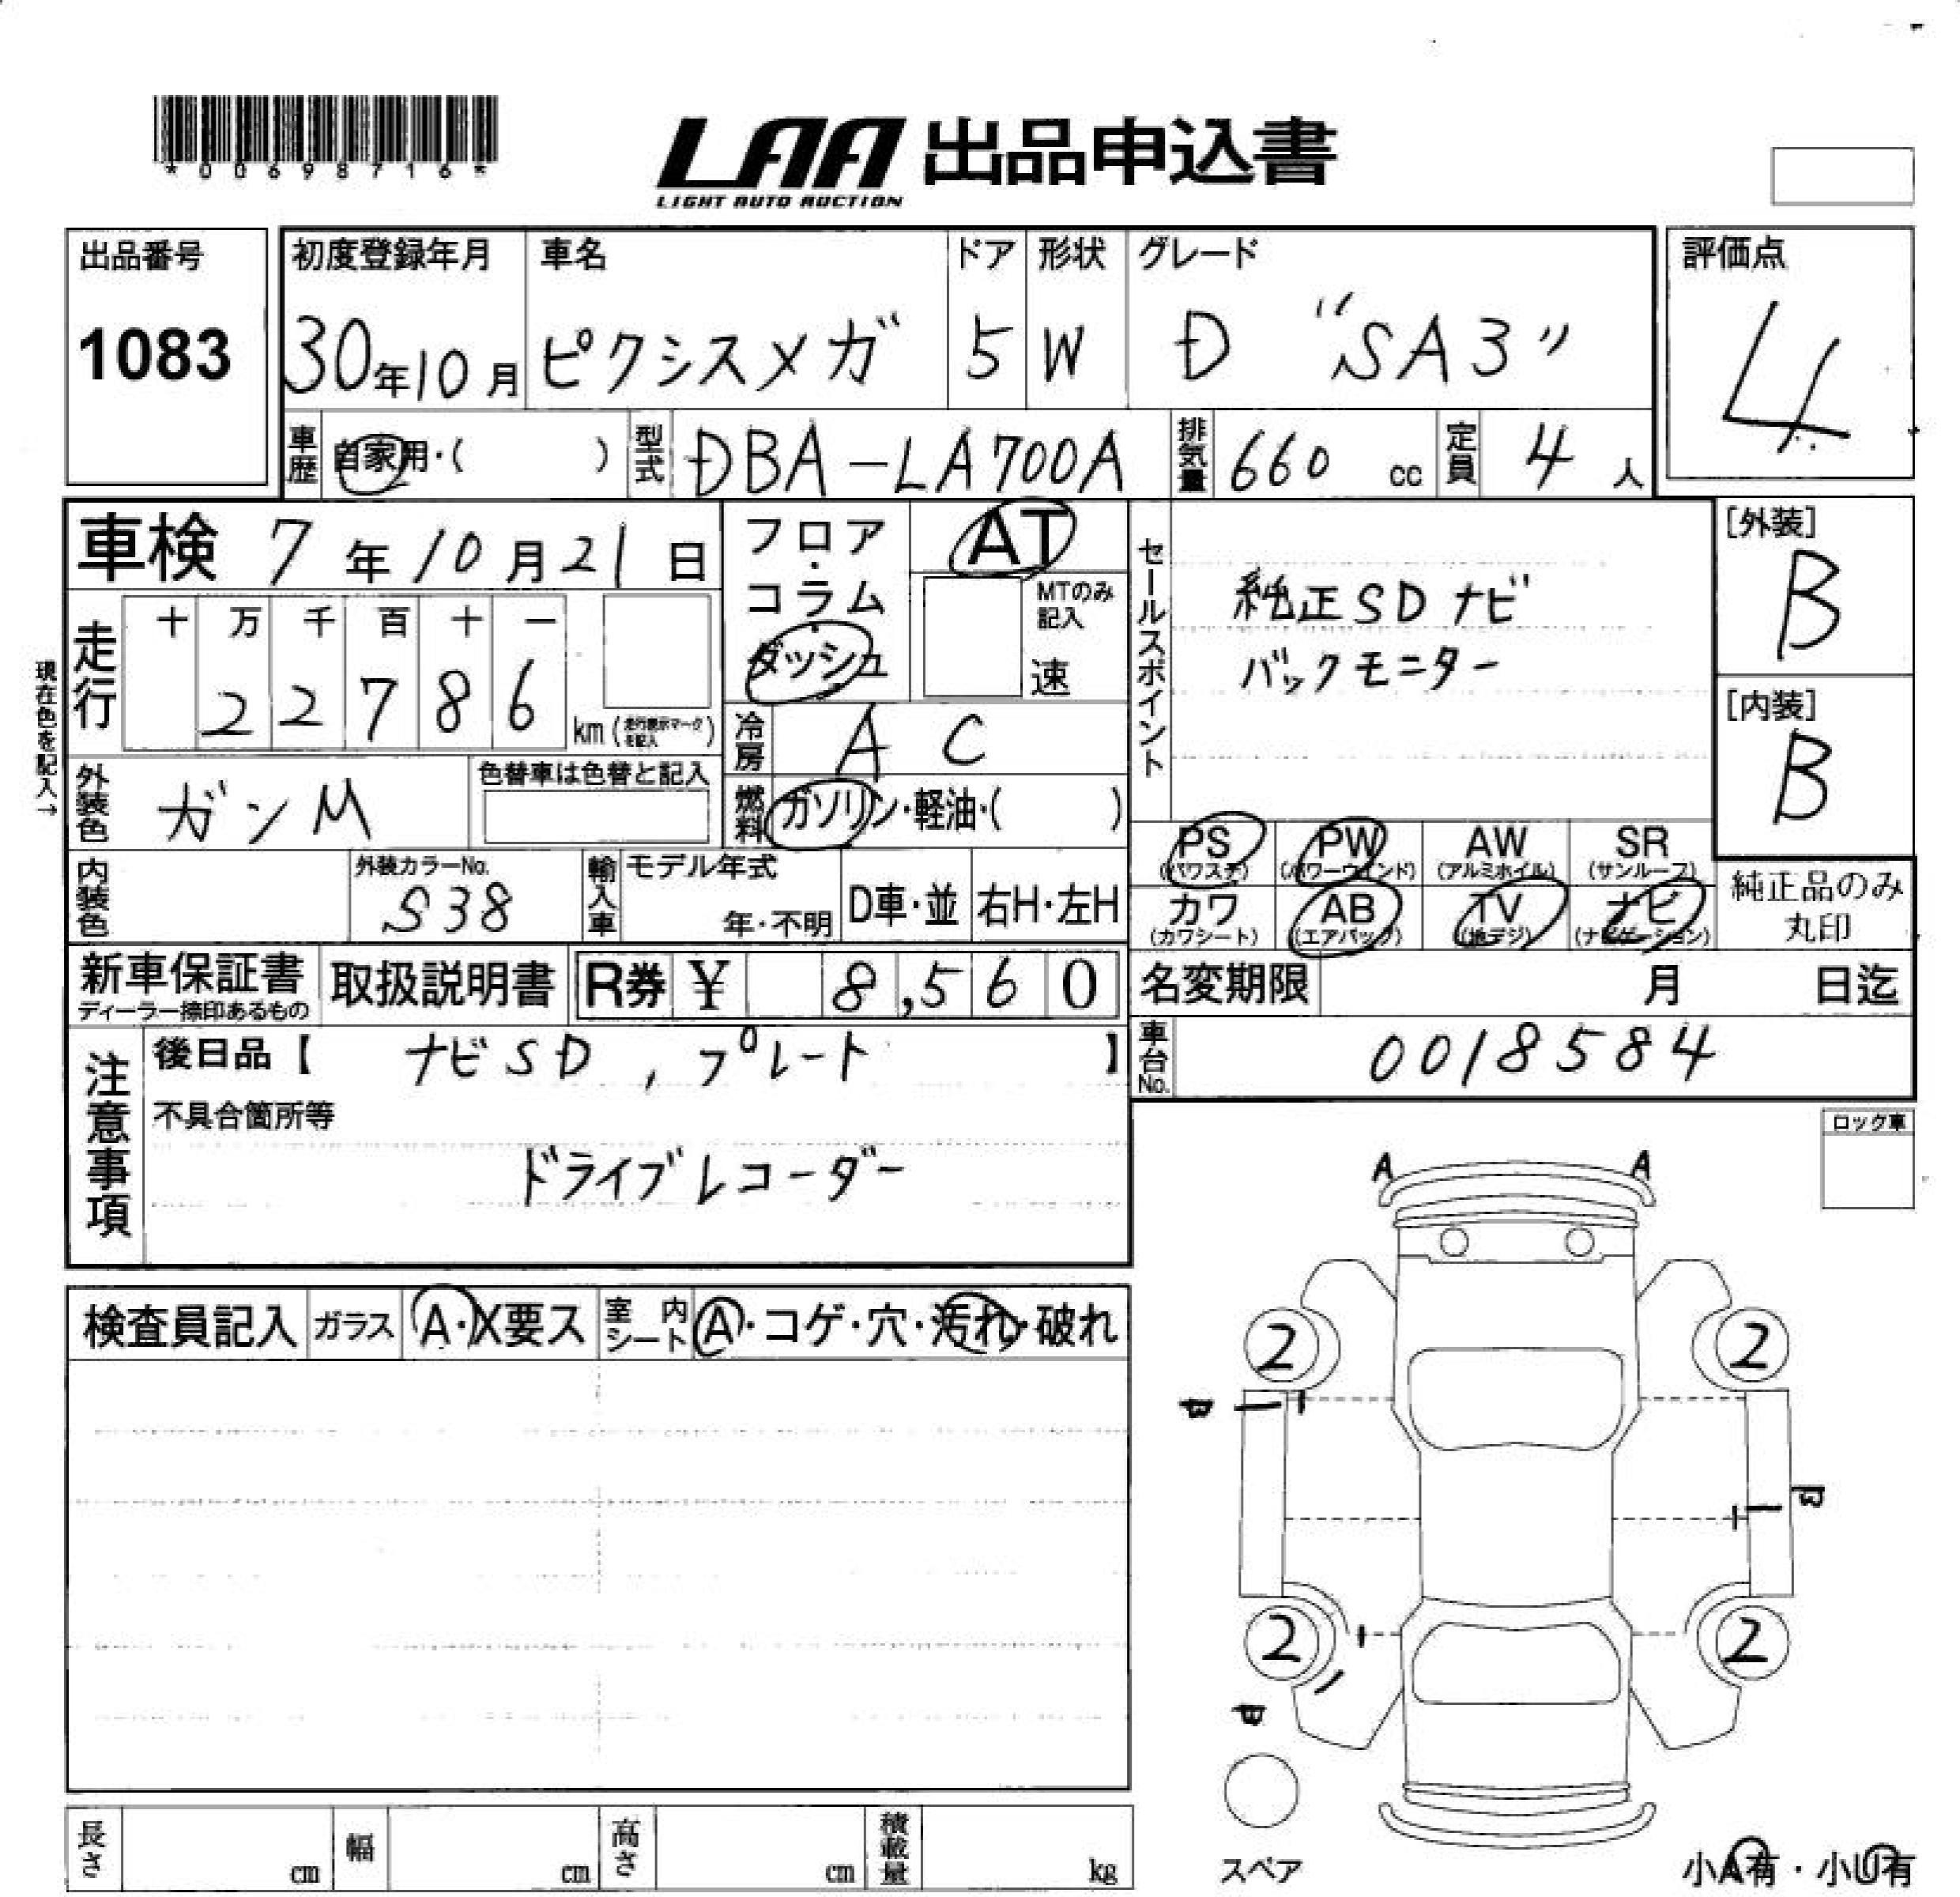 *00698716*
LAA 出品申込書
LIGHT AUTO AUCTION
出品番号
1083
初度登録年月 車名 ドア 形状 グレード
30年10月 ピクシスメガ 5 W D "SA3"
評価点
4
車歴 自家用・( ) 型式 DBA-LA700A 排気量 660 cc 定員 4 人
車検 7年10月21日
フロア・コラム
ダッシュ
AT
MTのみ記入
速
セールスポイント
純正SDナビ
バックモニター
[外装]
B
[内装]
B
現在色を記入→
走行 十 万 千 百 十 一
22786 km (走行表示マークを記入)
冷房 AC
外装色 ガンM 色替車は色替と記入
燃料 ガソリン・軽油・( )
内装色 外装カラーNo. S38
輸入車 モデル年式 年・不明 D車・並 右H・左H
PS (パワステ) PW (パワーウインド) AW (アルミホイル) SR (サンルーフ)
カワ (カワシート) AB (エアバック) TV (地デジ) ナビ (ナビゲーション)
純正品のみ丸印
新車保証書 ディーラー捺印あるもの 取扱説明書 R券 ¥ 8,560
名変期限 月 日迄
車台No. 0018584
注意事項
後日品【 ナビSD , プレート 】
不具合箇所等
ドライブレコーダー
ロック車
検査員記入 ガラス A・X要ス 室内シート A・コゲ・穴・汚れ・破れ
A A
2 2
B
B
2 2
B
スペア
小A有・小U有
長さ cm 幅 cm 高さ cm 積載量 kg